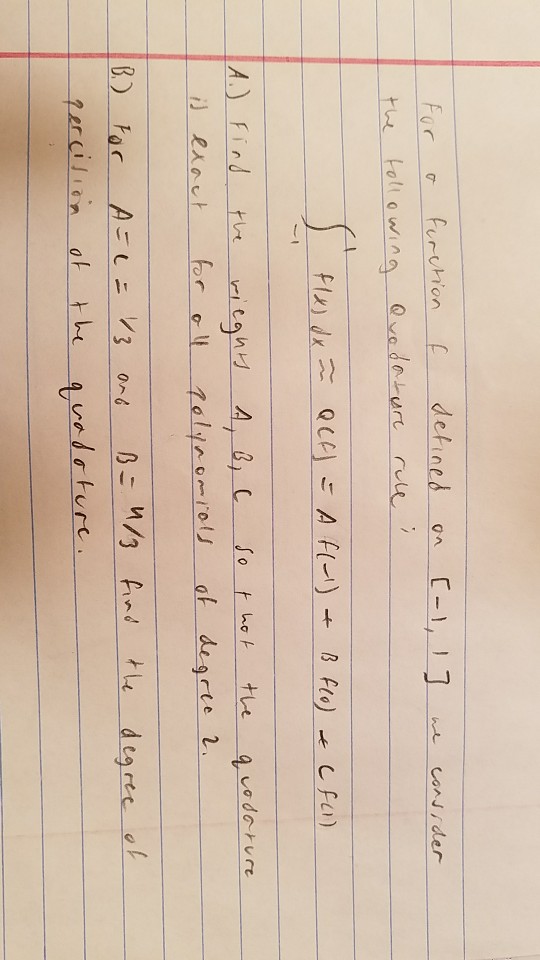 For a function f defined on [-1, 1] we consider
the following Quadature rule;
∫₋₁¹ f(x) dx ≈ Q(f) = A f(-1) + B f(0) + C f(1)
A.) Find the wieghts A, B, C so that the quadature
is exact for all polynomials of degree 2.
B.) For A = C = 1/3 and B = 4/3 find the degree of
percision of the quadature.